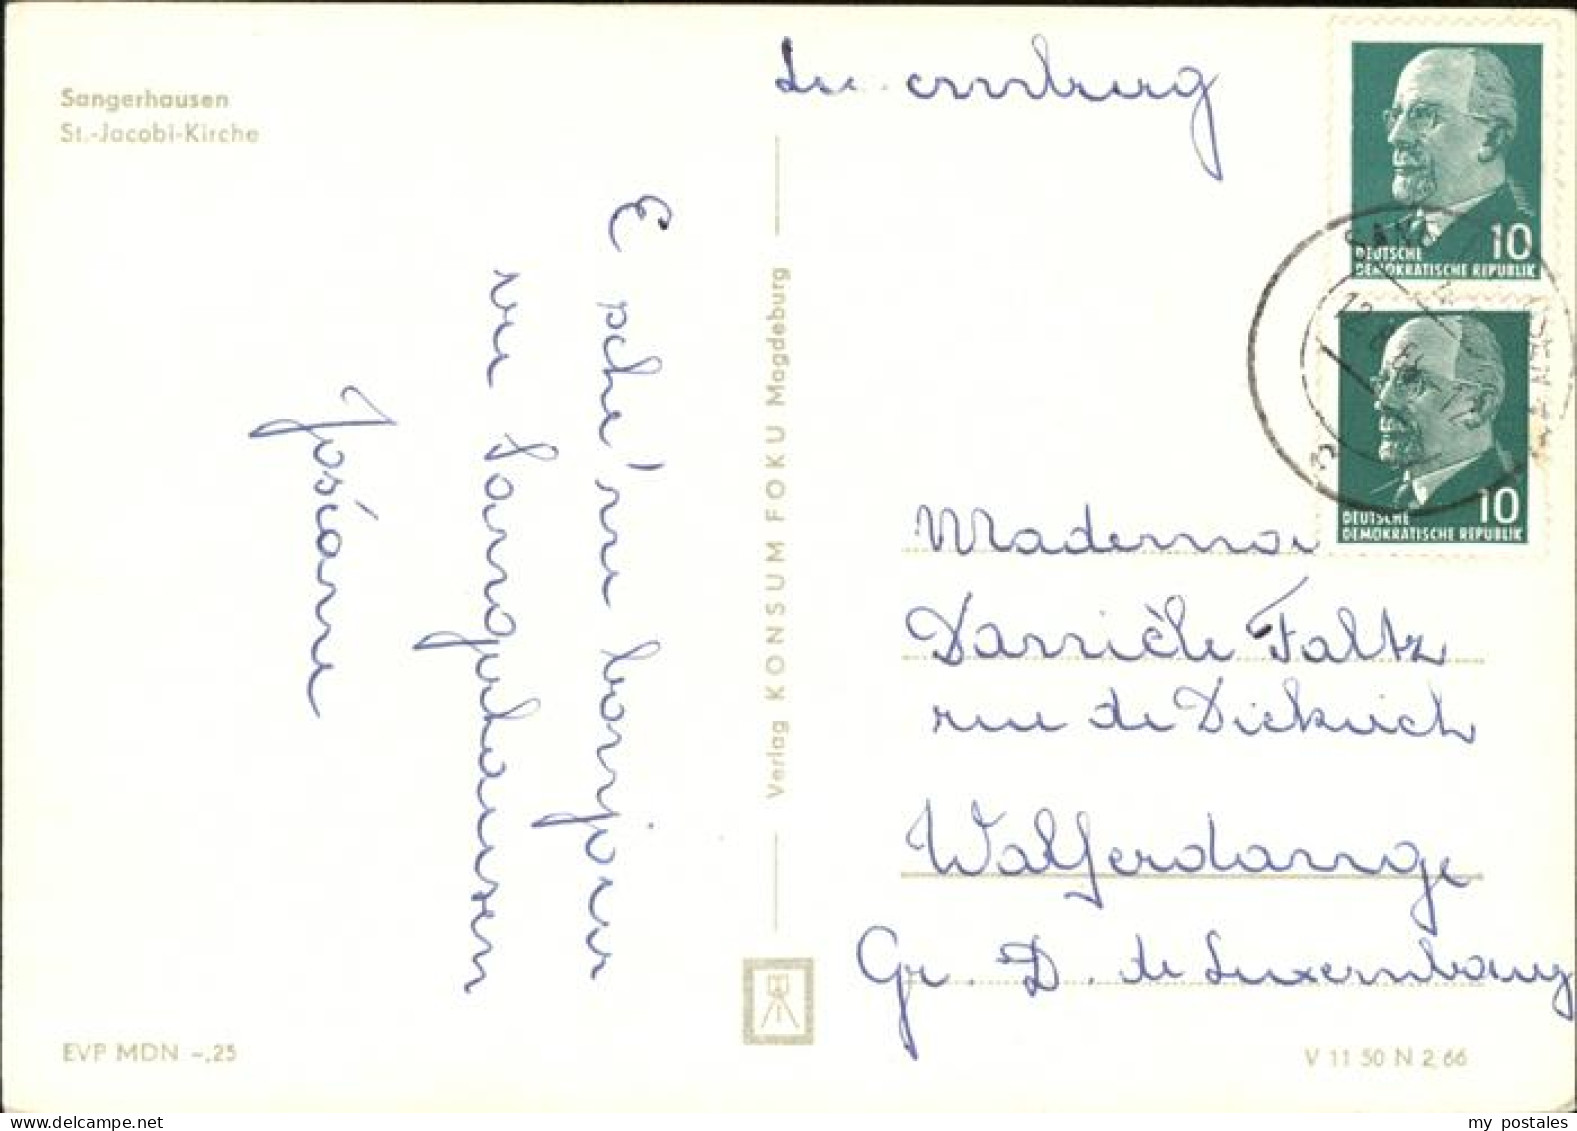 Sangerhausen
St.-Jacobi-Kirche
E sche'ne bonjour
vu Sangerhausen
Josiane
EVP MDN -,25
Verlag KONSUM FOKU Magdeburg
10
DEUTSCHE
DEMOKRATISCHE REPUBLIK
10
DEUTSCHE
DEMOKRATISCHE REPUBLIK
Mademoi
Danièle Faltz
rue de Diekirch
Walferdange
Gr. D. de Luxembourg
V 11 50 N 2,66
my postales